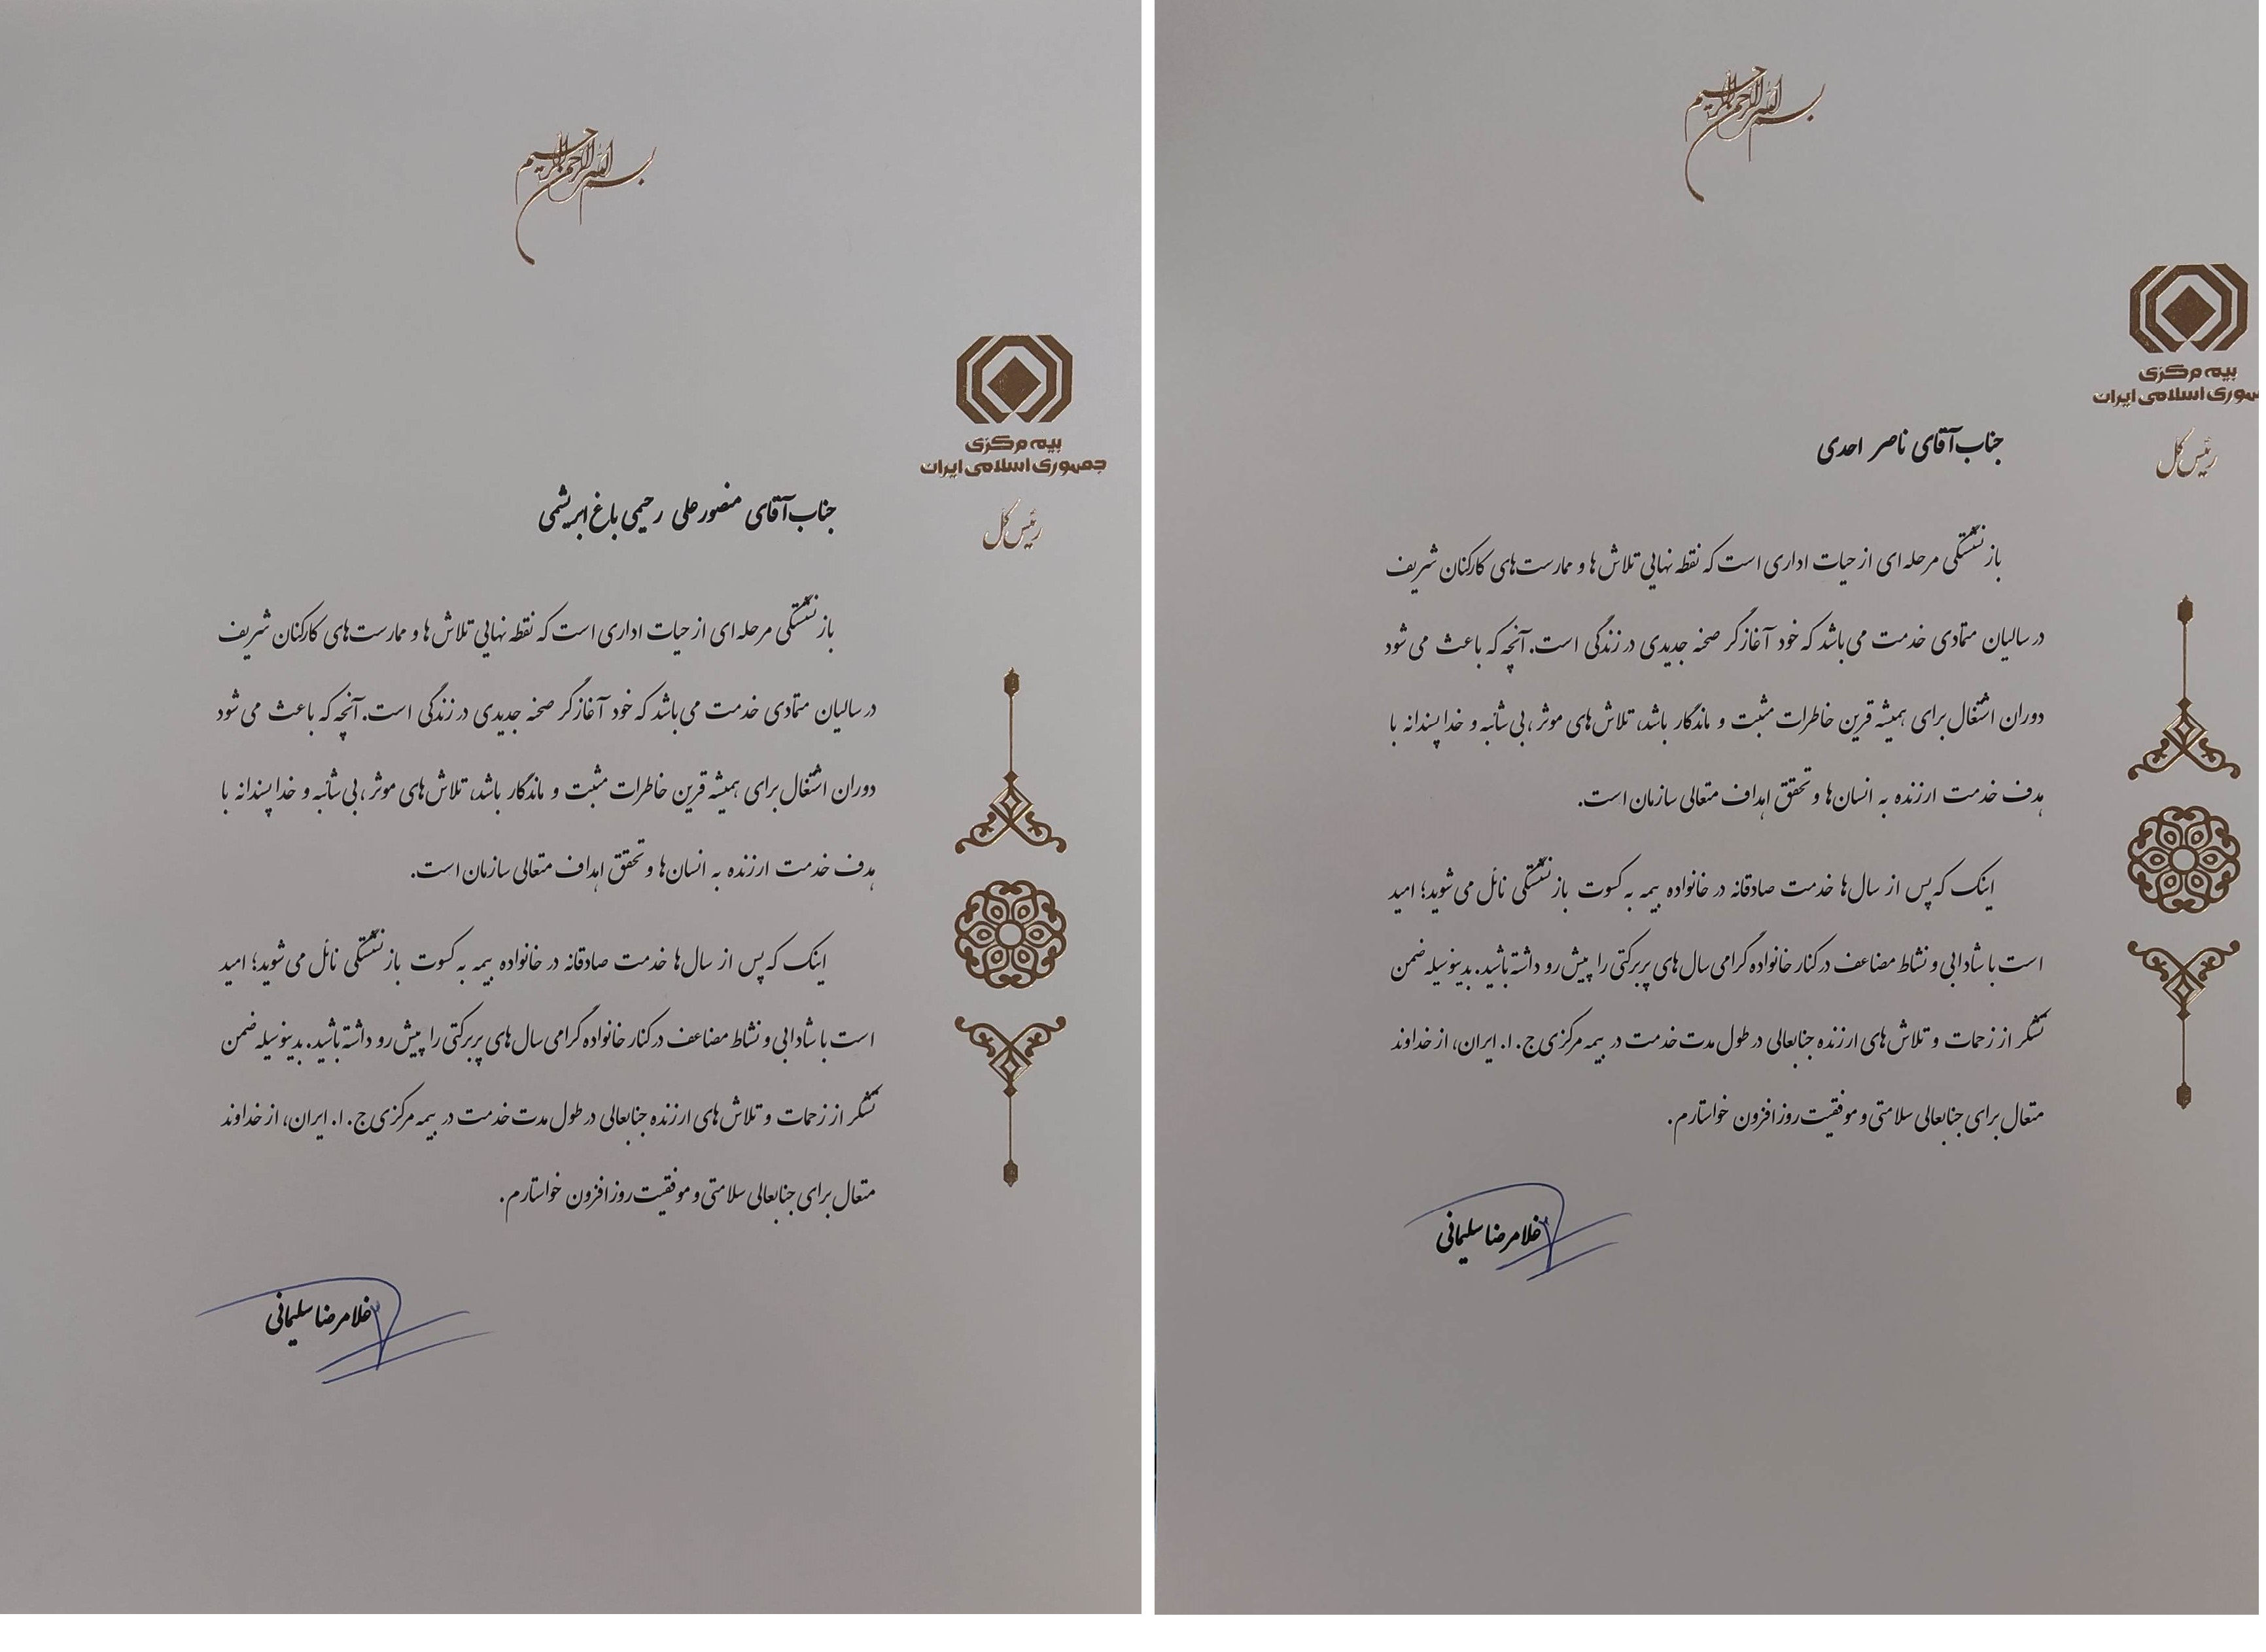 بسم الله الرحمن الرحیم
بیمه مرکزی
جمهوری اسلامی ایران
رئیس کل
جناب آقای منصورعلی رحیمی باغ ابریشمی
بازنشستگی مرحله ای از حیات اداری است که نقطه نهایی تلاش ها و ممارست های کارکنان شریف
در سالیان متمادی خدمت می باشد که خود آغازگر صحنه جدیدی در زندگی است. آنچه که باعث می شود
دوران اشتغال برای همیشه قرین خاطرات مثبت و ماندگار باشد، تلاش های موثر، بی شائبه و خداپسندانه با
هدف خدمت ارزنده به انسان ها و تحقق اهداف متعالی سازمان است.
اینک که پس از سال ها خدمت صادقانه در خانواده بیمه به کسوت بازنشستگی نائل می شوید؛ امید
است با شادابی و نشاط مضاعف در کنار خانواده گرامی سال های پربرکتی را پیش رو داشته باشید. بدینوسیله ضمن
تشکر از زحمات و تلاش های ارزنده جنابعالی در طول مدت خدمت در بیمه مرکزی ج. ا. ایران، از خداوند
متعال برای جنابعالی سلامتی و موفقیت روزافزون خواستارم.
غلامرضا سلیمانی
بسم الله الرحمن الرحیم
بیمه مرکزی
جمهوری اسلامی ایران
رئیس کل
جناب آقای ناصر احدی
بازنشستگی مرحله ای از حیات اداری است که نقطه نهایی تلاش ها و ممارست های کارکنان شریف
در سالیان متمادی خدمت می باشد که خود آغازگر صحنه جدیدی در زندگی است. آنچه که باعث می شود
دوران اشتغال برای همیشه قرین خاطرات مثبت و ماندگار باشد، تلاش های موثر، بی شائبه و خداپسندانه با
هدف خدمت ارزنده به انسان ها و تحقق اهداف متعالی سازمان است.
اینک که پس از سال ها خدمت صادقانه در خانواده بیمه به کسوت بازنشستگی نائل می شوید؛ امید
است با شادابی و نشاط مضاعف در کنار خانواده گرامی سال های پربرکتی را پیش رو داشته باشید. بدینوسیله ضمن
تشکر از زحمات و تلاش های ارزنده جنابعالی در طول مدت خدمت در بیمه مرکزی ج. ا. ایران، از خداوند
متعال برای جنابعالی سلامتی و موفقیت روزافزون خواستارم.
غلامرضا سلیمانی